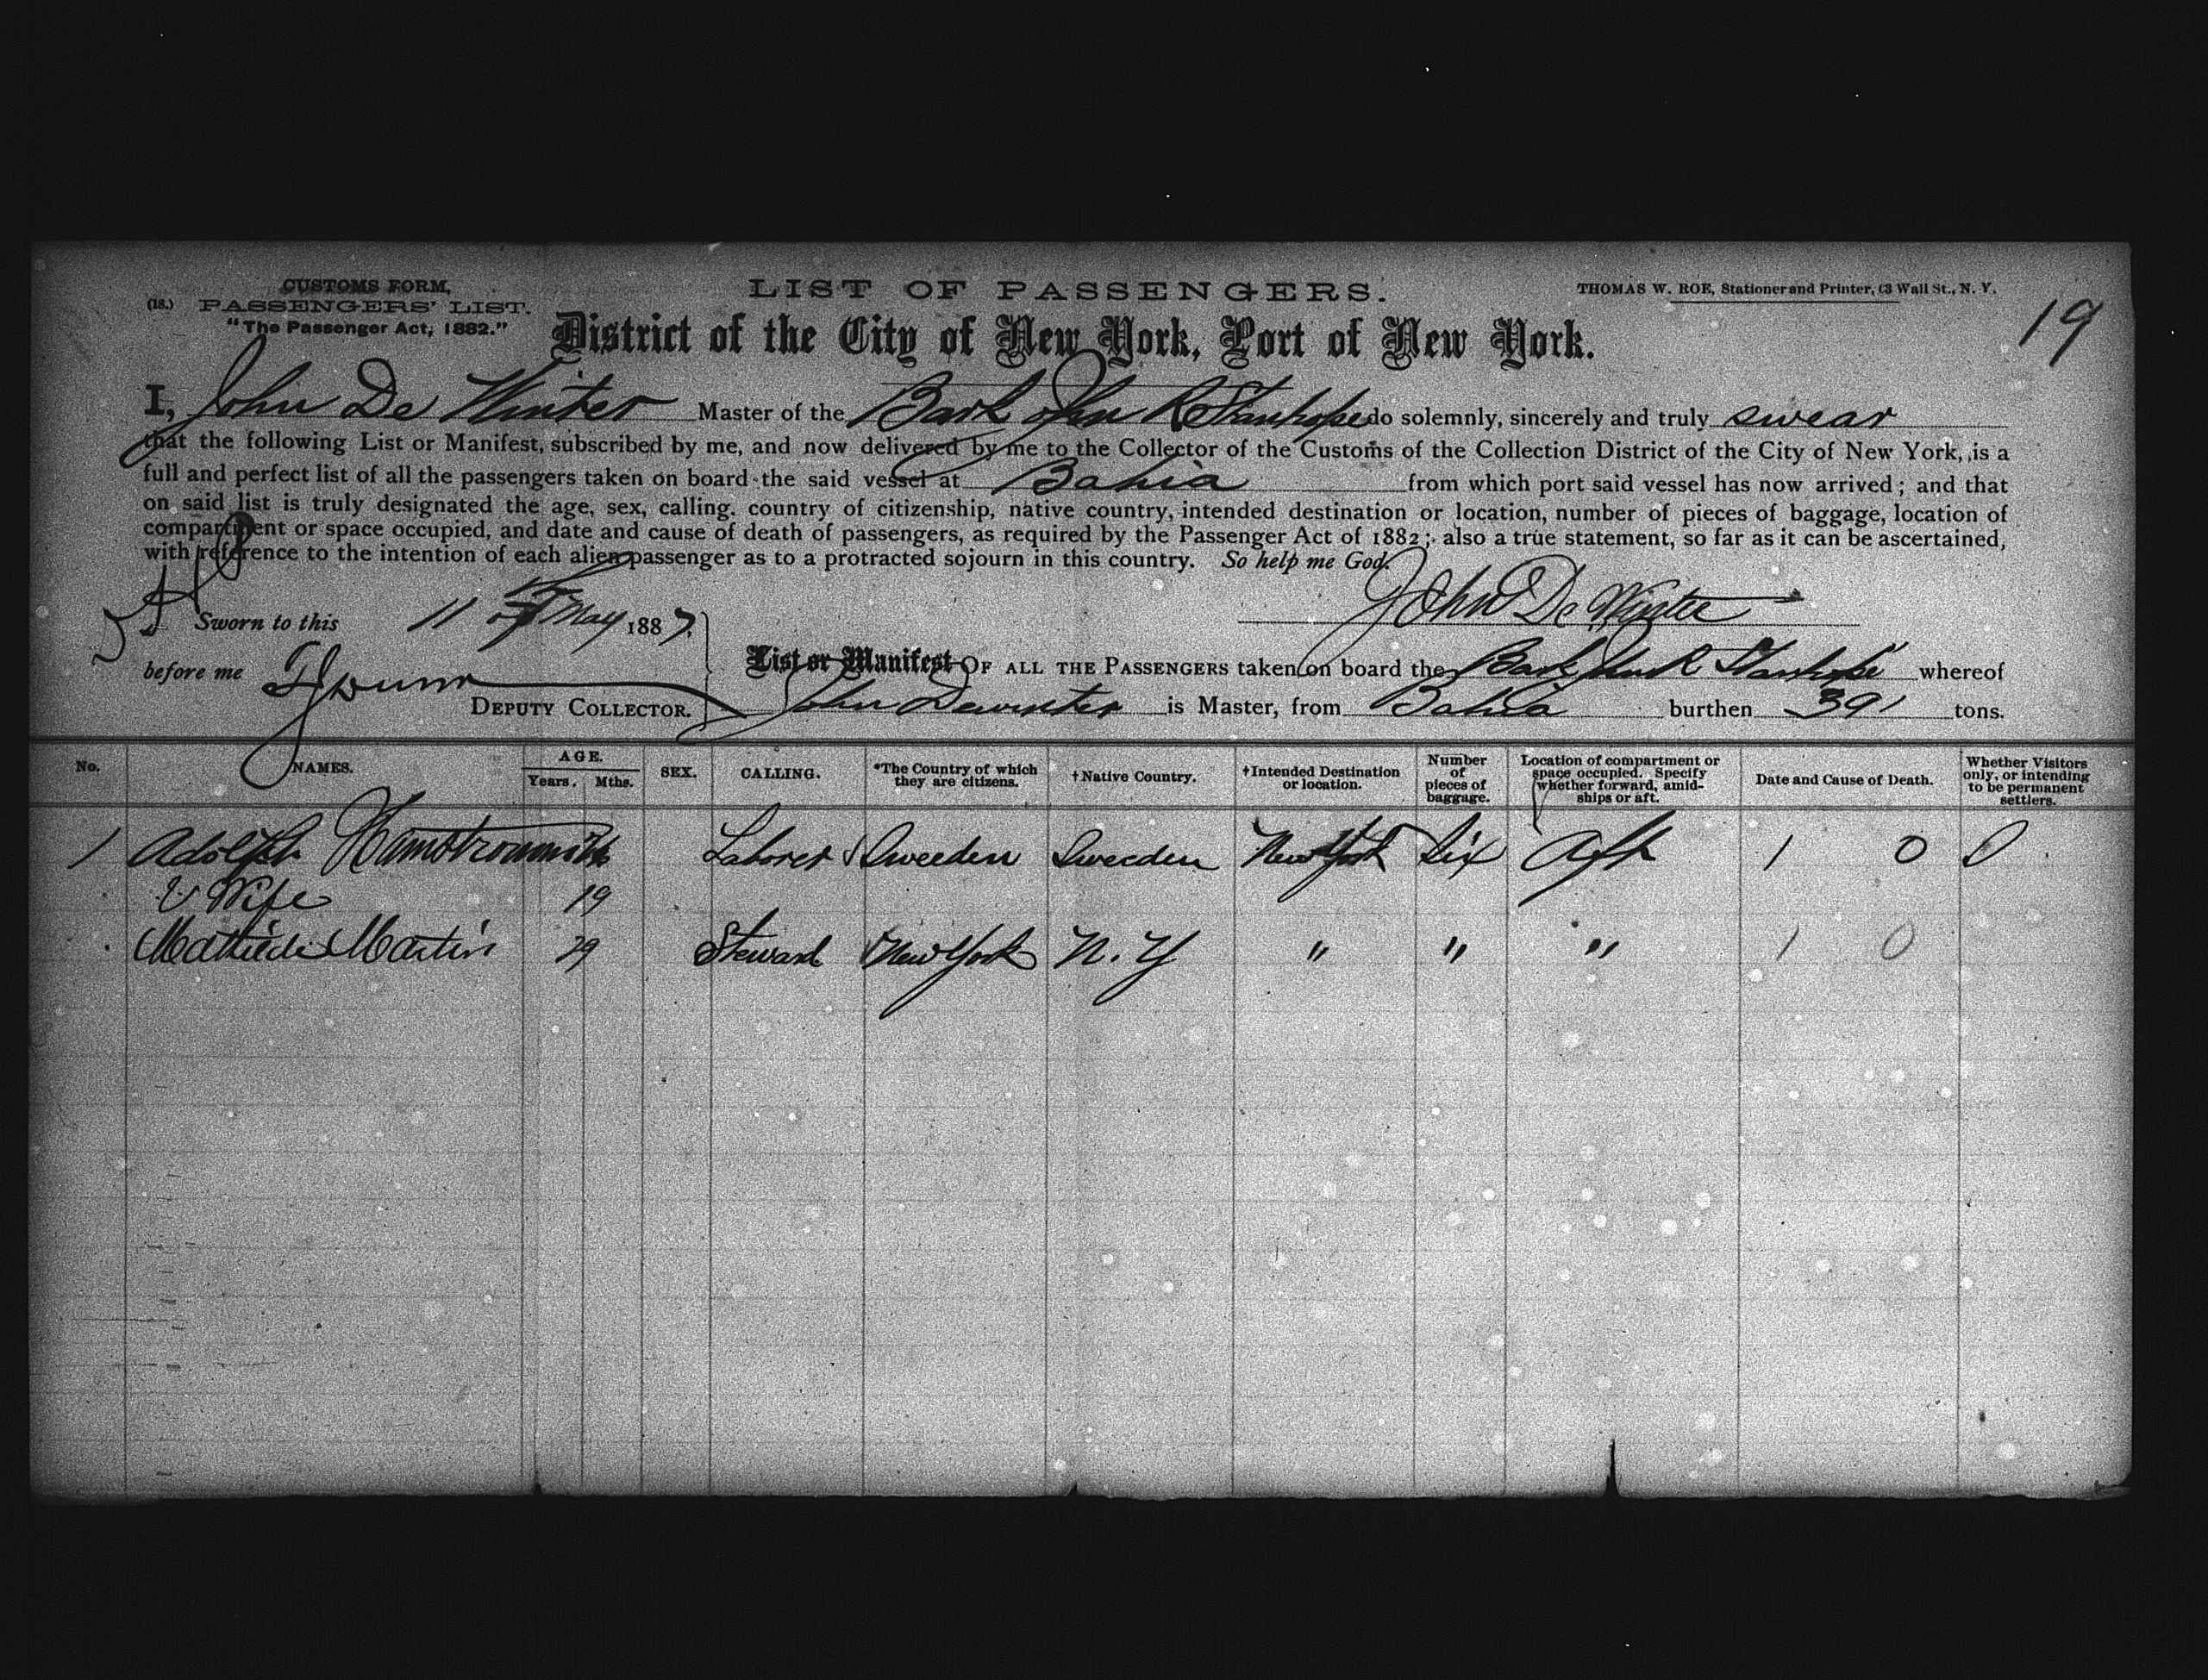 CUSTOMS FORM,
(18.) PASSENGERS' LIST.
"The Passenger Act, 1882."
LIST OF PASSENGERS.
THOMAS W. ROE, Stationer and Printer, 63 Wall St., N. Y.
19
District of the City of New York, Port of New York.
I, John De Winter Master of the Bark John R Stanhope do solemnly, sincerely and truly swear
that the following List or Manifest, subscribed by me, and now delivered by me to the Collector of the Customs of the Collection District of the City of New York, is a
full and perfect list of all the passengers taken on board the said vessel at Bahia from which port said vessel has now arrived; and that
on said list is truly designated the age, sex, calling, country of citizenship, native country, intended destination or location, number of pieces of baggage, location of
compartment or space occupied, and date and cause of death of passengers, as required by the Passenger Act of 1882; also a true statement, so far as it can be ascertained,
with reference to the intention of each alien passenger as to a protracted sojourn in this country. So help me God.
Sworn to this 11 of May 1887, John De Winter
before me
DEPUTY COLLECTOR.
List or Manifest OF ALL THE PASSENGERS taken on board the Bark John R Stanhope whereof
John Dewinter is Master, from Bahia burthen 391 tons.
No. NAMES. AGE. Years. Mths. SEX. CALLING. *The Country of which they are citizens. †Native Country. †Intended Destination or location. Number of pieces of baggage. Location of compartment or space occupied. Specify whether forward, amidships or aft. Date and Cause of Death. Whether Visitors only, or intending to be permanent settlers.
1 Adolph Laborer Sweeden Sweeden New York Six Aft 1 0 0
Wife 19
Martin 29 Steward New York N. Y " " " 1 0